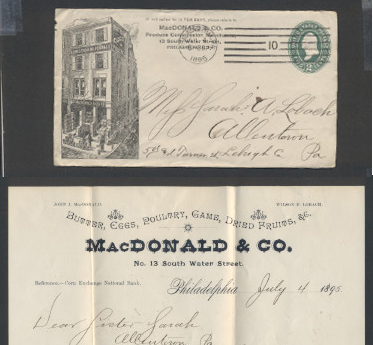 If not called for in TEN DAYS, please return to
MACDONALD & CO.
Produce Commission Merchants,
13 South Water Street,
PHILADELPHIA
1895
10
Miss Sarah A. Lobach
Allentown
Lehigh Co Pa
JOHN J. MACDONALD
WILSON P. LOBACH
BUTTER, EGGS, POULTRY, GAME, DRIED FRUITS, &C.
MACDONALD & CO.
No. 13 South Water Street.
Reference—Corn Exchange National Bank.
Philadelphia July 4 1895
Dear Sister Sarah
Allentown Pa